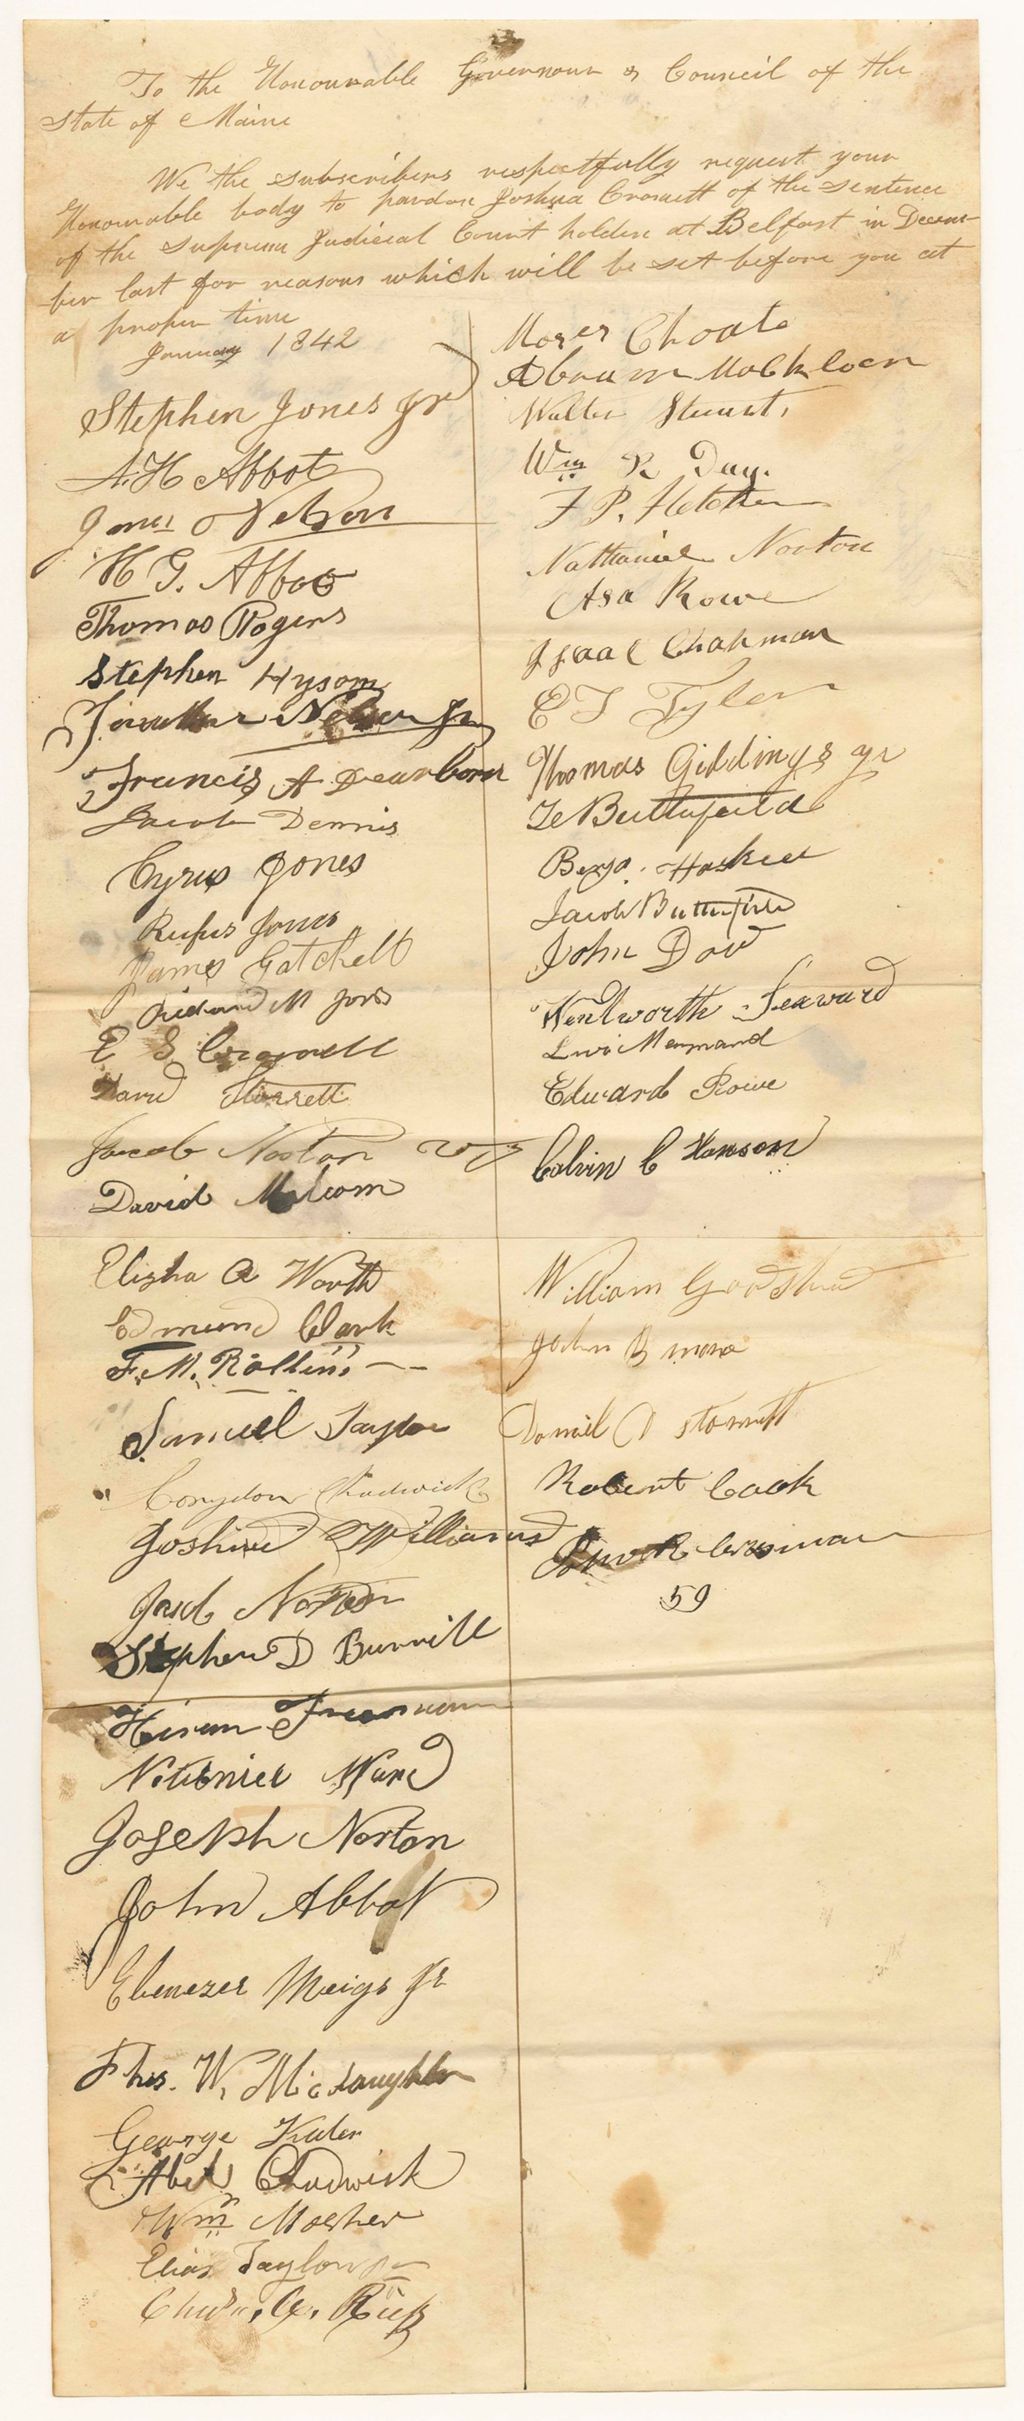 To the Honourable Governour & Council of the
State of Maine
We the subscribers respectfully request your
Honourable body to pardon Joshua Crowell of the sentence
of the Supreme Judicial Court holden at Belfast in Decem-
ber last for reasons which will be set before you at
a proper time
January 1842
Stephen Jones Jr
A. H. Abbot
Nelson
H G. Abbot
Thomas Rogers
Stephen Hysom
Jonathan Nelson Jr
Francis A Dearborn
Jacob Dennis
Cyrus Jones
Rufus Jones
James Gatchell
Richard M Jones
E S Crowell
David Starrett
Jacob Norton
David Malcom
Elisha A Worth
Edmund Clark
F. M. Rollins
Samuel Taylor
Corydon Chadwick
Williams
Norton
Stephen D Burrill
Hiram Freeman
Ward
Joseph Norton
John Abbot
Ebenezer Meigs Jr
Thos. W. McLaughlin
George
Abel Chadwick
Wm Mosher
Elias Taylor Jr
Moses Choate
Abram
Walter Stuart
Wm R Day.
F. P. Fletcher
Nathaniel Norton
Asa Rowe
Isaac Chapman
E T Tyler
Thomas Giddings Jr
Butterfield
Benja. Haskell
Jacob Butterfield
John Dow
Wentworth Seaward
Edward Rowe
Calvin C Hanson
William
John B
Daniel D Starrett
Robert Cook
59